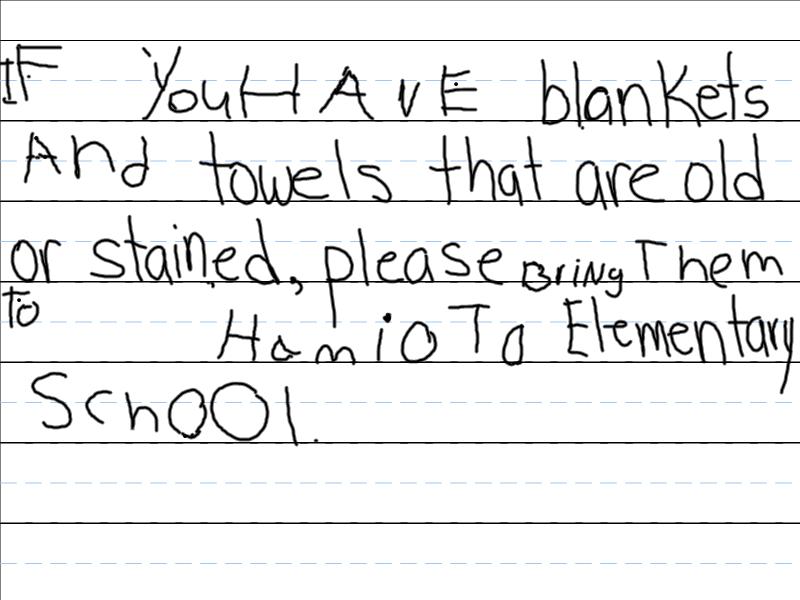 IF YouHAvE blanKets
And towels that are old
or stained, please BriNg Them
To HamioTo Elementary
SchOOl.